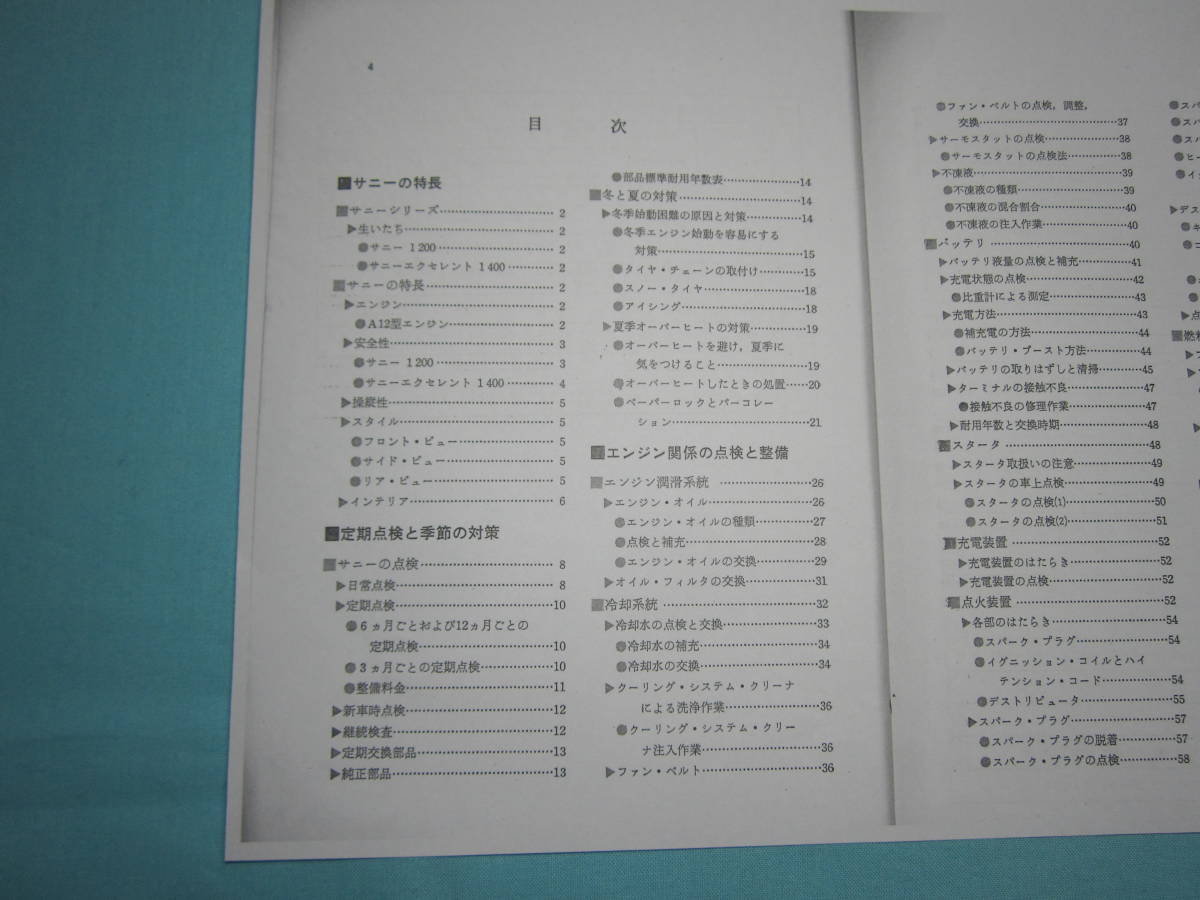 4
目 次
■サニーの特長
■サニーシリーズ………………………… 2
▶生いたち………………………………… 2
●サニー 1200…………………………… 2
●サニーエクセレント 1400………… 2
■サニーの特長…………………………… 2
▶エンジン………………………………… 2
●A12型エンジン……………………… 2
▶安全性…………………………………… 3
●サニー 1200…………………………… 3
●サニーエクセレント 1400………… 4
▶操縦性…………………………………… 5
▶スタイル………………………………… 5
●フロント・ビュー…………………… 5
●サイド・ビュー……………………… 5
●リア・ビュー………………………… 5
▶インテリア……………………………… 6
■定期点検と季節の対策
■サニーの点検…………………………… 8
▶日常点検………………………………… 8
▶定期点検…………………………………10
●6ヵ月ごとおよび12ヵ月ごとの
定期点検………………………………10
●3ヵ月ごとの定期点検………………10
●整備料金………………………………11
▶新車時点検………………………………12
▶継続検査…………………………………12
▶定期交換部品……………………………13
▶純正部品…………………………………13
●部品標準耐用年数表…………………14
■冬と夏の対策……………………………14
▶冬季始動困難の原因と対策……………14
●冬季エンジン始動を容易にする
対策……………………………………15
●タイヤ・チェーンの取付け…………15
●スノー・タイヤ………………………18
●アイシング……………………………18
▶夏季オーバーヒートの対策……………19
●オーバーヒートを避け，夏季に
気をつけること………………………19
●オーバーヒートしたときの処置……20
●ベーパーロックとパーコレー
ション…………………………………21
■エンジン関係の点検と整備
■エンジン潤滑系統 ……………………26
▶エンジン・オイル………………………26
●エンジン・オイルの種類……………27
●点検と補充……………………………28
●エンジン・オイルの交換……………29
▶オイル・フィルタの交換………………31
■冷却系統 ………………………………32
▶冷却水の点検と交換……………………33
●冷却水の補充…………………………34
●冷却水の交換…………………………34
▶クーリング・システム・クリーナ
による洗浄作業………………………36
●クーリング・システム・クリー
ナ注入作業……………………………36
▶ファン・ベルト…………………………36
●ファン・ベルトの点検，調整，
交換……………………………………37
▶サーモスタットの点検…………………38
●サーモスタットの点検法……………38
▶不凍液……………………………………39
●不凍液の種類…………………………39
●不凍液の混合割合……………………40
●不凍液の注入作業……………………40
■バッテリ ………………………………40
▶バッテリ液量の点検と補充……………41
▶充電状態の点検…………………………42
●比重計による測定……………………43
▶充電方法…………………………………43
●補充電の方法…………………………44
●バッテリ・ブースト方法……………44
▶バッテリの取りはずしと清掃…………45
▶ターミナルの接触不良…………………47
●接触不良の修理作業…………………47
▶耐用年数と交換時期……………………48
■スタータ ………………………………48
▶スタータ取扱いの注意…………………49
▶スタータの車上点検……………………49
●スタータの点検(1)……………………50
●スタータの点検(2)……………………51
■充電装置 ………………………………52
▶充電装置のはたらき……………………52
▶充電装置の点検…………………………52
■点火装置 ………………………………52
▶各部のはたらき…………………………54
●スパーク・プラグ……………………54
●イグニッション・コイルとハイ
テンション・コード…………………54
●デストリビュータ……………………55
▶スパーク・プラグ………………………57
●スパーク・プラグの脱着……………57
●スパーク・プラグの点検……………58